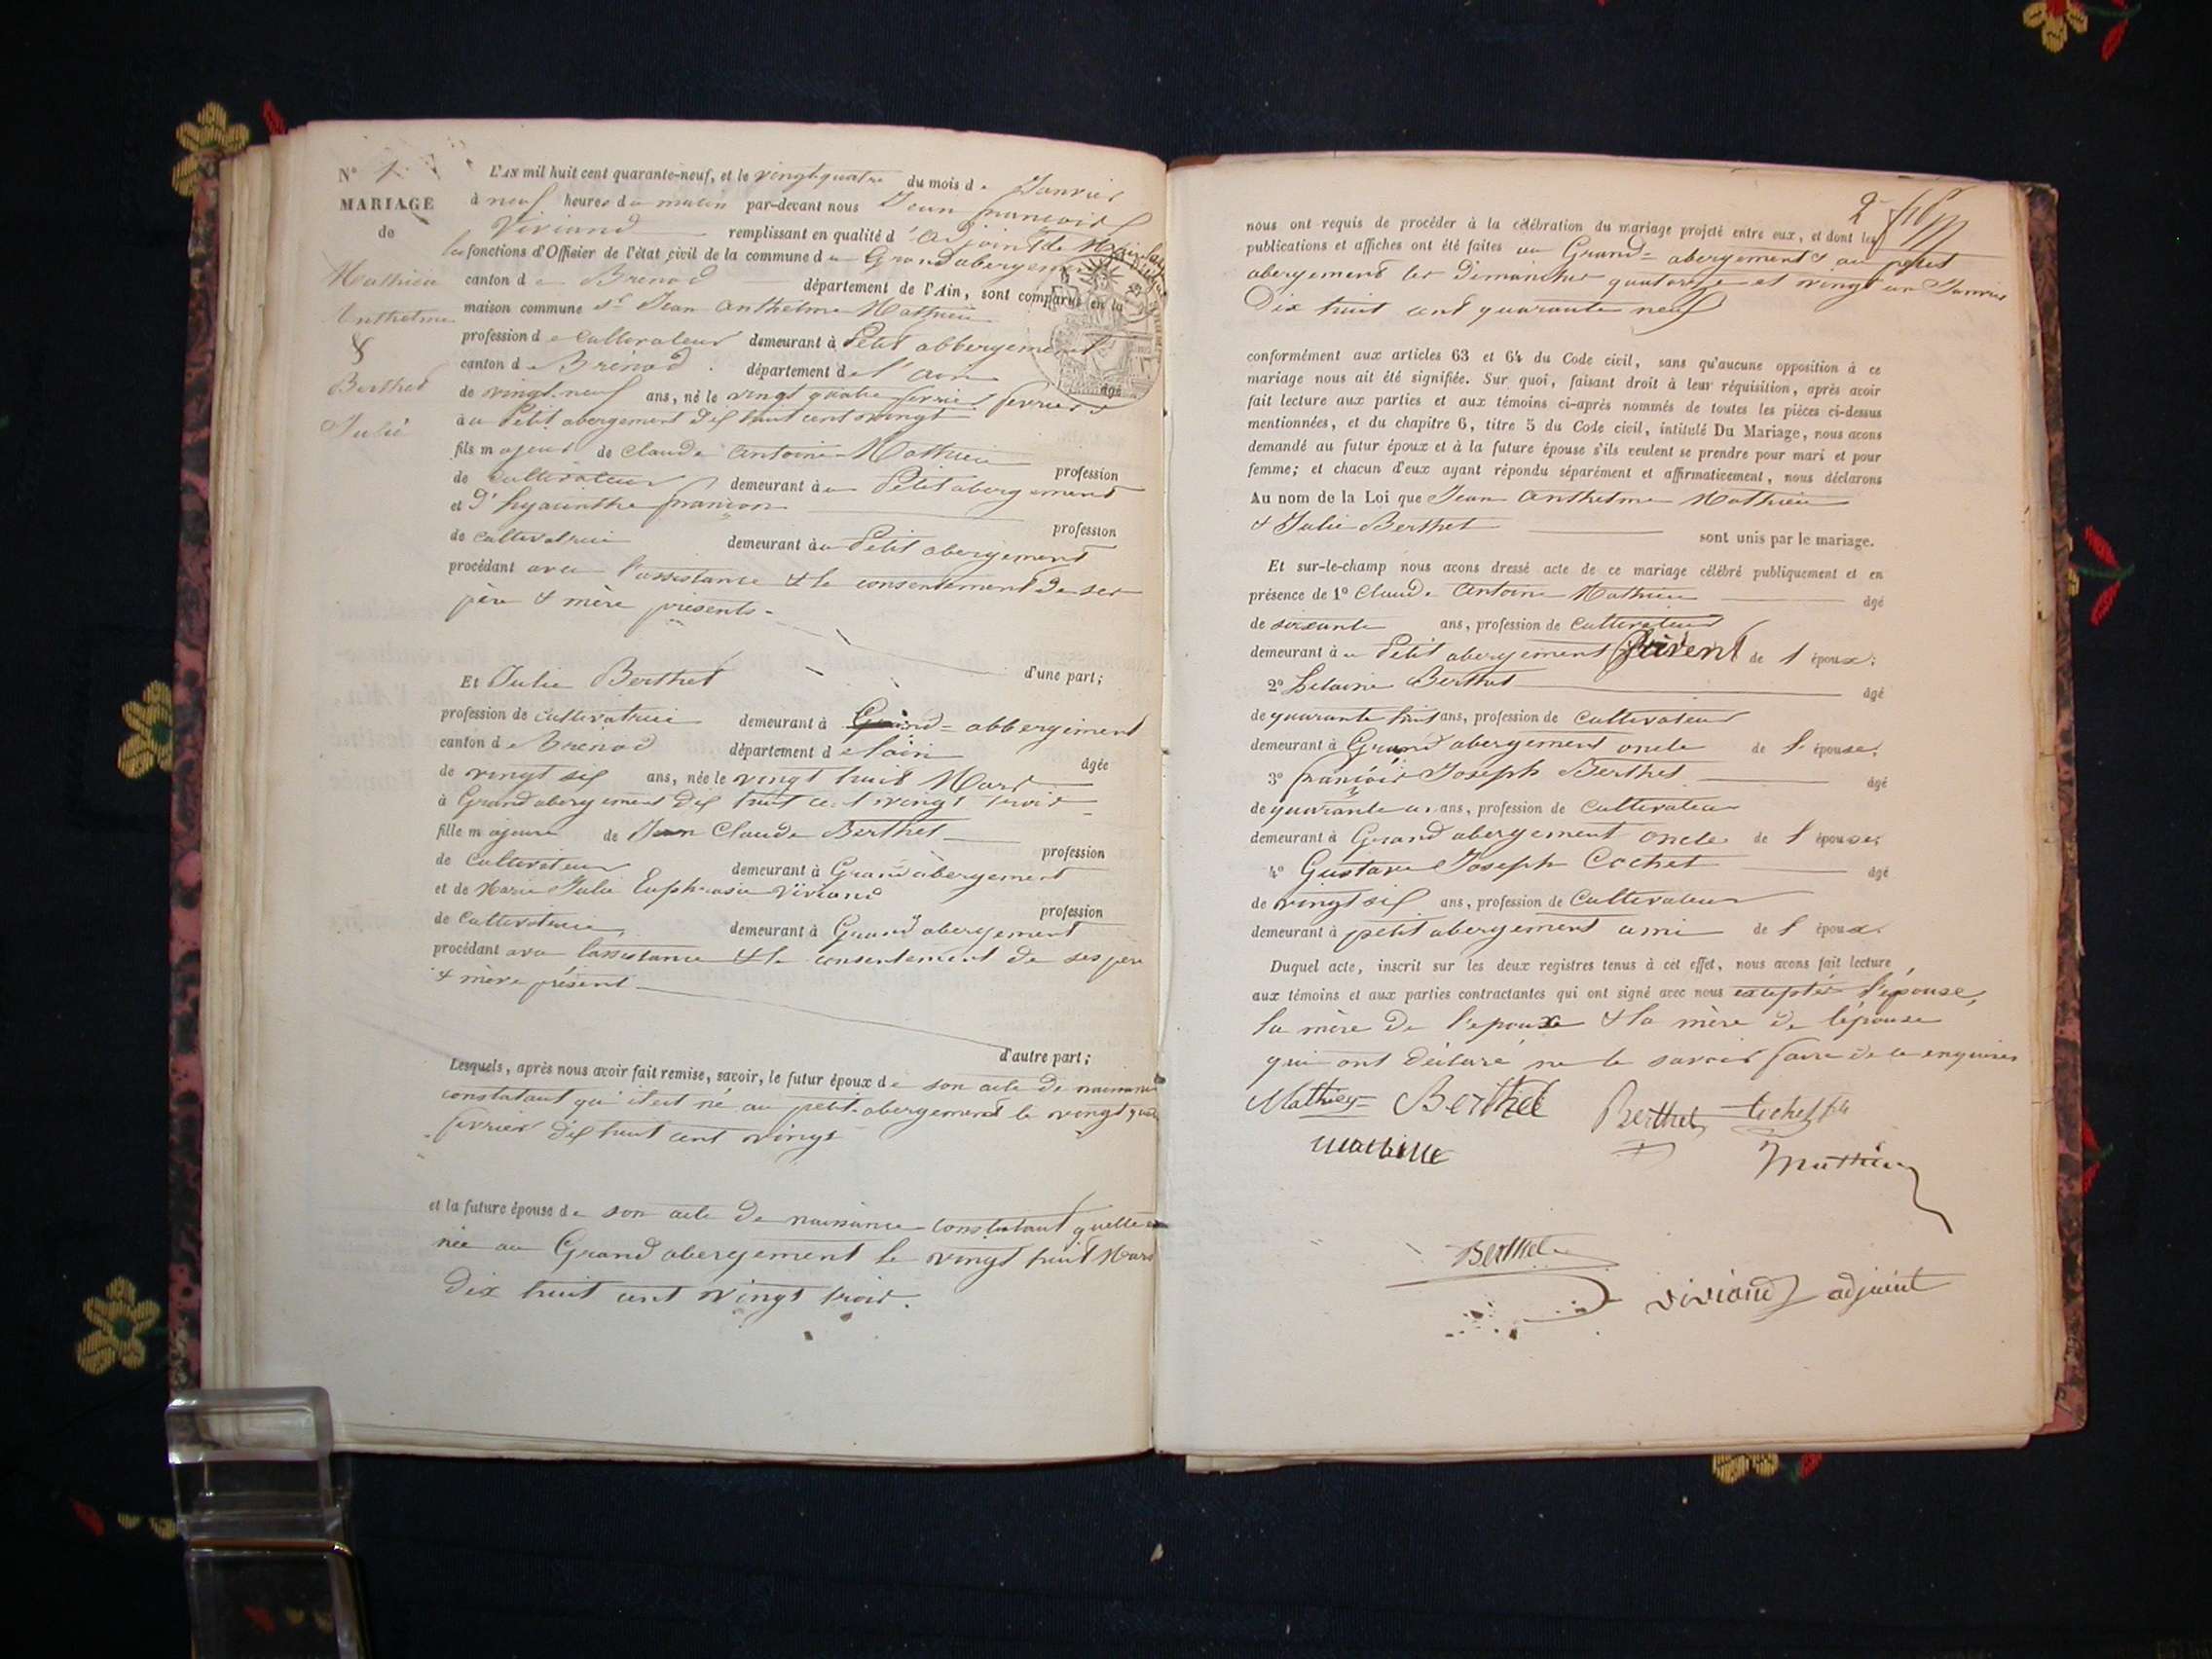 N° 1
MARIAGE
de
Mathieu
Anthelme
&
Berthet
Julie
L'AN mil huit cent quarante-neuf, et le vingt quatre du mois de Janvier
à neuf heures du matin par-devant nous Jean françois
Viviand remplissant en qualité d'adjoint de Maire les
fonctions d'Officier de l'état civil de la commune de Grand abergement
canton de Brenod département de l'Ain, sont comparus en la
maison commune Sr Jean Anthelme Mathieu
profession de Cultivateur demeurant à Petit abbergement
canton de Brénod département de l'ain âgé
de vingt-neuf ans, né le vingt quatre fevrier fevrier
au Petit abergement dix huit cent vingt
fils majeur de Claude Antoine Mathieu profession
de Cultivateur demeurant au Petit abergement
et d'hyacinthe françon profession
de Cultivatrice demeurant au Petit abergement
procédant avec l'assistance & le consentement de ses
père & mère présents
d'une part;
Et Julie Berthet
profession de cultivatrice demeurant à Grand=abbergement
canton de Brénod département de l'ain âgée
de vingt six ans, née le vingt huit Mars
à Grand abergement dix huit cent vingt trois
fille majeure de Jean Claude Berthet profession
de Cultivateur demeurant à Grand abergement
et de Marie Julie Euphrasie Viviand profession
de Cultivatrice demeurant à Grand abergement
procédant avec l'assistance & le consentement de ses père
& mère présent
d'autre part;
Lesquels, après nous avoir fait remise, savoir, le futur époux de son acte de naissance
constatant qu'il est né au petit-abergement le vingt quatre
fevrier dix huit cent vingt
et la future épouse de son acte de naissance constatant quelle est
née au Grand abergement le vingt huit Mars
Dix huit cent vingt trois.
2
nous ont requis de procéder à la célébration du mariage projeté entre eux, et dont les
publications et affiches ont été faites au Grand=abergement & au petit
abergement les dimanches quatorze et vingt un Janvier
Dix huit cent quarante neuf
conformément aux articles 63 et 64 du Code civil, sans qu'aucune opposition à ce
mariage nous ait été signifiée. Sur quoi, faisant droit à leur réquisition, après avoir
fait lecture aux parties et aux témoins ci-après nommés de toutes les pièces ci-dessus
mentionnées, et du chapitre 6, titre 5 du Code civil, intitulé Du Mariage, nous avons
demandé au futur époux et à la future épouse s'ils veulent se prendre pour mari et pour
femme; et chacun d'eux ayant répondu séparément et affirmativement, nous déclarons
Au nom de la Loi que Jean Anthelme Mathieu
& Julie Berthet sont unis par le mariage.
Et sur-le-champ nous avons dressé acte de ce mariage célébré publiquement et en
présence de 1° Claude Antoine Mathieu âgé
de soixante ans, profession de Cultivateur
demeurant au Petit abergement de l'époux;
2° hilaire Berthet âgé
de quarante huit ans, profession de Cultivateur
demeurant à Grand abergement oncle de l'épouse;
3° françois Joseph Berthet âgé
de quarante un ans, profession de Cultivateur
demeurant à Grand abergement oncle de l'épouse;
4° Gustave Joseph Cochet âgé
de vingt six ans, profession de Cultivateur
demeurant à petit abergement ami de l'époux.
Duquel acte, inscrit sur les deux registres tenus à cet effet, nous avons fait lecture
aux témoins et aux parties contractantes qui ont signé avec nous exceptés l'épouse,
la mère de l'époux & la mère de l'épouse
qui ont déclaré ne le savoir faire de ce enquises
Mathieu Berthet Berthet Cochet fils
Mathieu
Berthet
Viviand adjoint